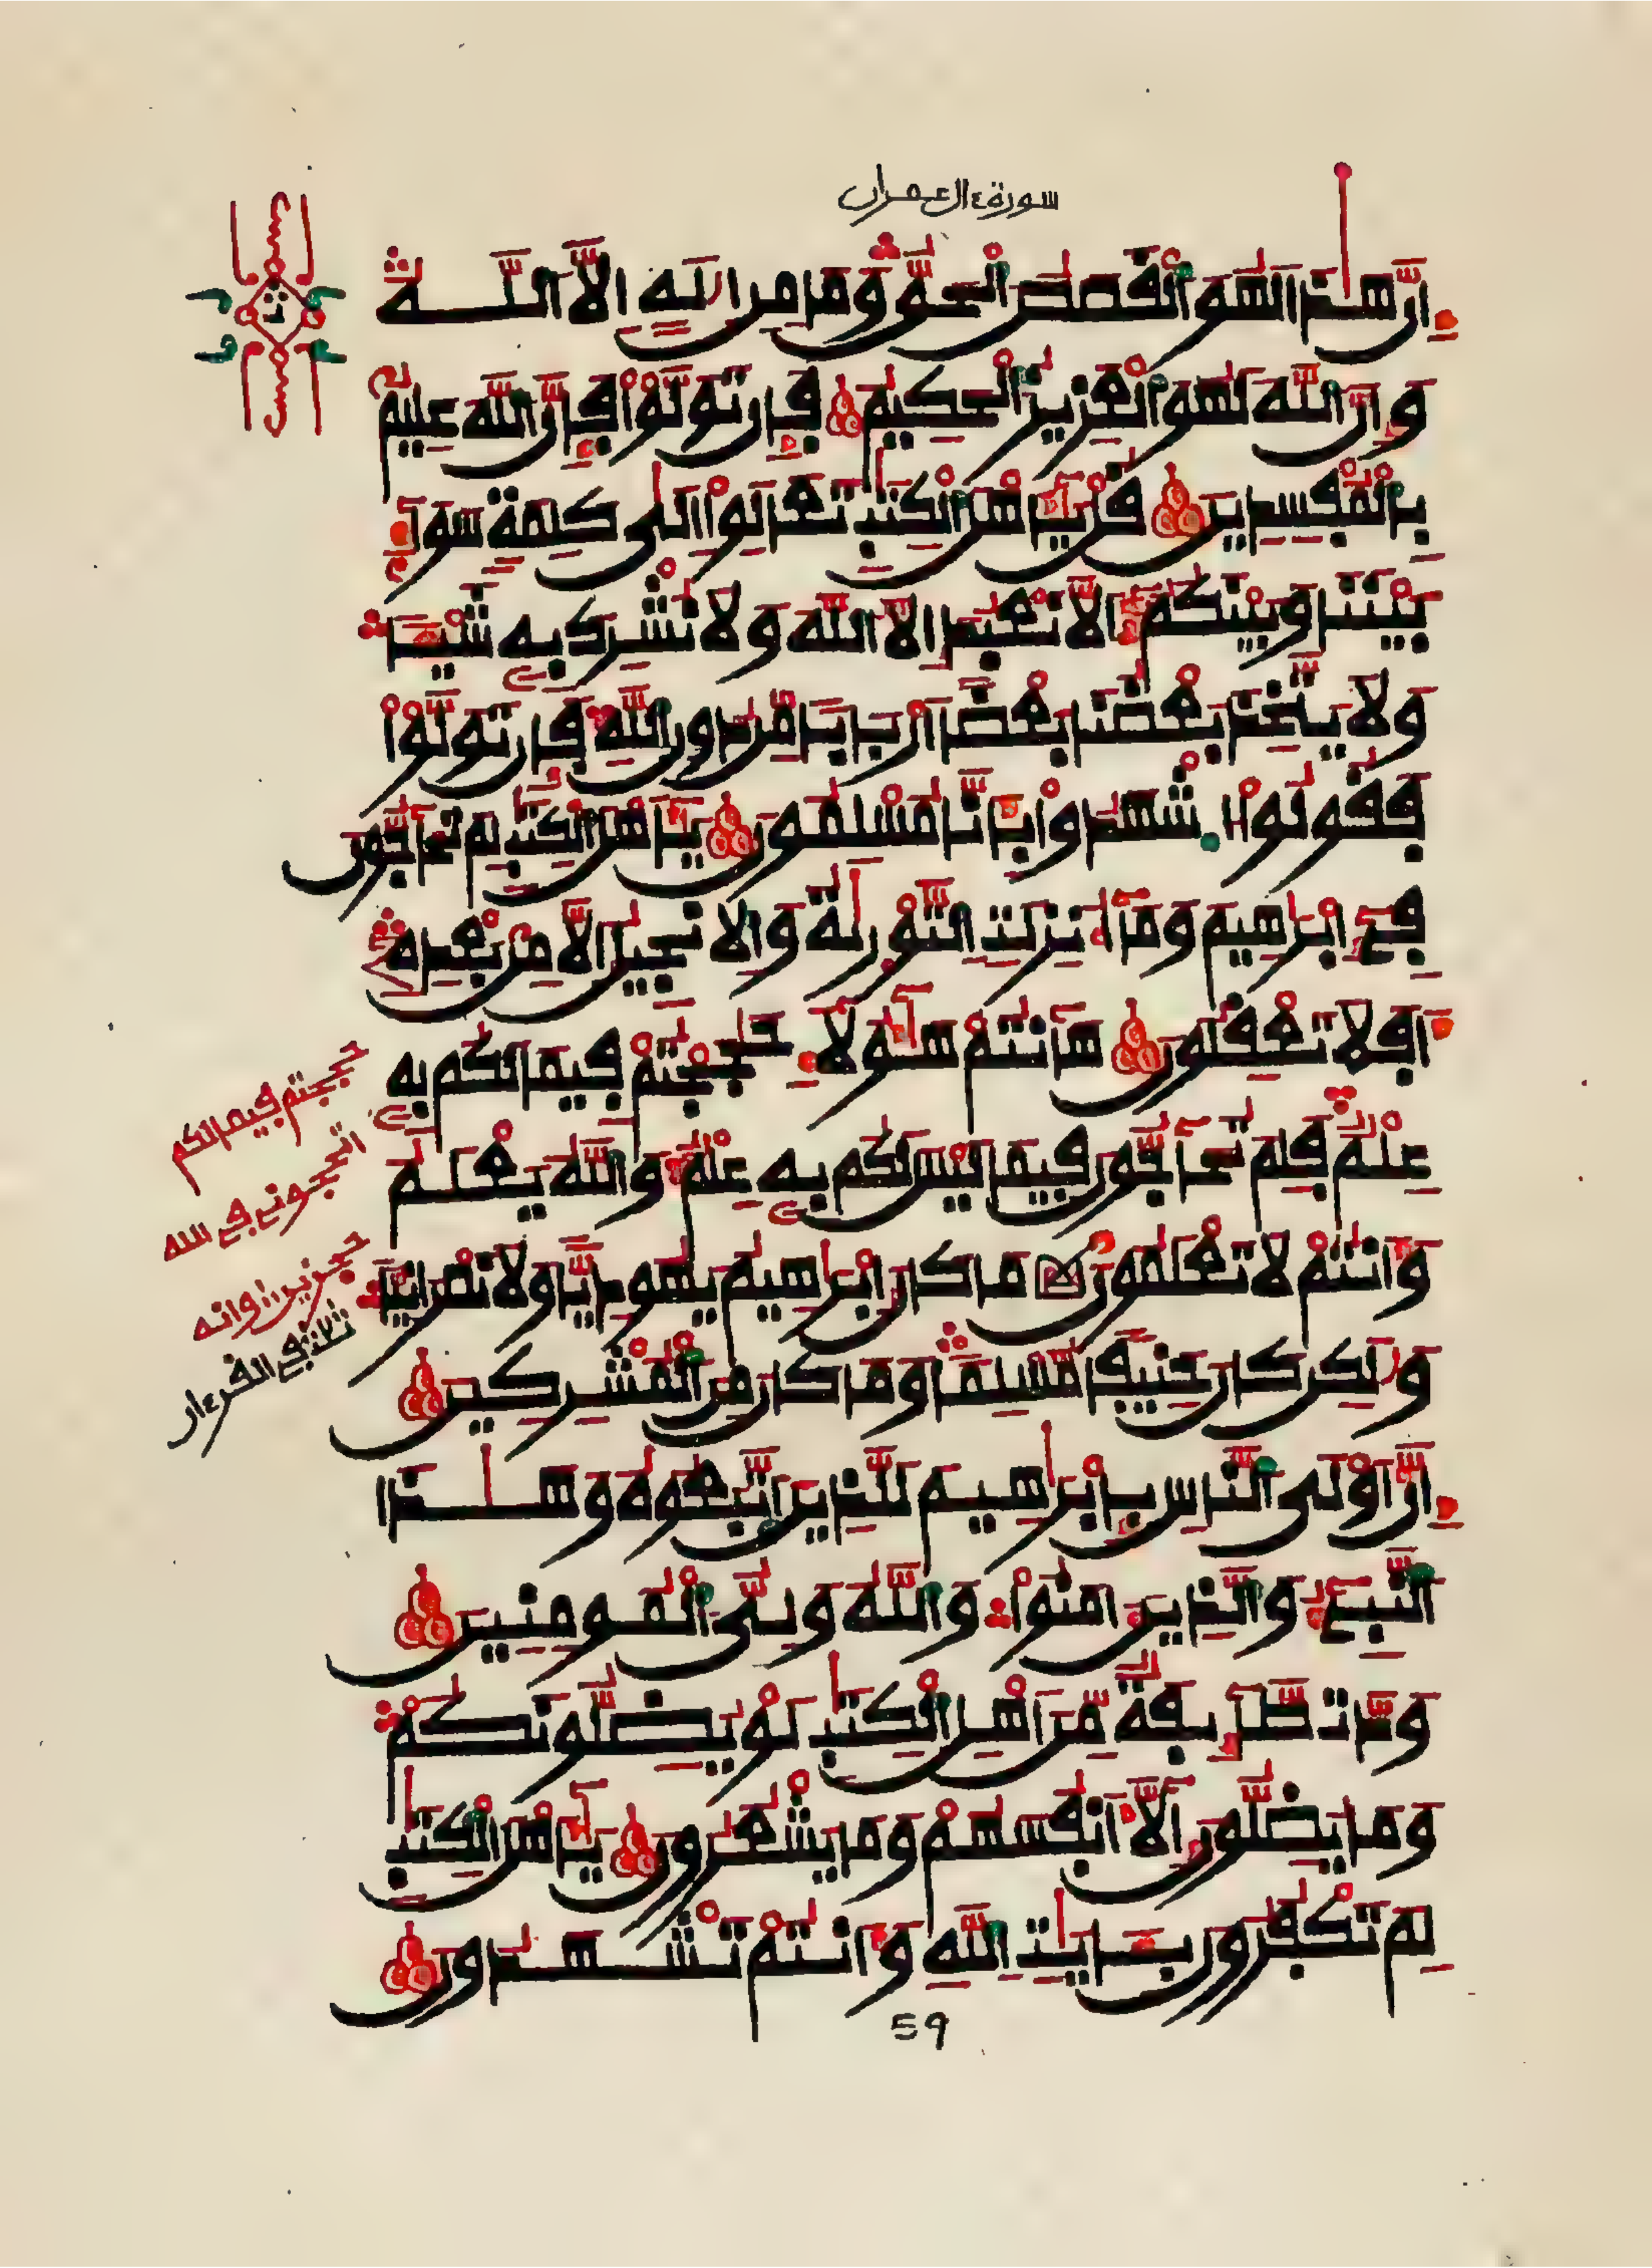 سورة ءال عمران
ث
إنّ هذا لهو القصص الحقّ وما من اله إلّا اللّه
وإنّ اللّه لهو العزيز الحكيم فإن تولّوا فإنّ اللّه عليم
بالمفسدين قل يأهل الكتب تعالوا الى كلمة سواء
بيننا وبينكم ألّا نعبد إلّا اللّه ولا نشرك به شيئا
ولا يتّخذ بعضنا بعضا اربابا مّن دون اللّه فإن تولّوا
فقولوا اشهدوا بأنّا مسلمون يأهل الكتب لم تحاجّون
فى إبرهيم وما أنزلت التّورية والانجيل إلّا من بعده
أفلا تعقلون هانتم هؤلاء حججتم فيما لكم به
علم فلم تحاجّون فيما ليس لكم به علم واللّه يعلم
وأنتم لا تعلمون ما كان إبرهيم يهوديّا ولا نصرانيّا
ولكن كان حنيفا مّسلما وما كان من المشركين
إنّ أولى النّاس بإبرهيم للّذين اتّبعوه وهذا
النّبىء والّذين ءامنوا واللّه ولىّ المومنين
ودّت طّائفة مّن اهل الكتب لو يضلّونكم
وما يضلّون إلّا أنفسهم وما يشعرون يأهل الكتب
لم تكفرون بـايت اللّه وأنتم تشهدون
حججتم فيما لكم
اتحجونى فى الله